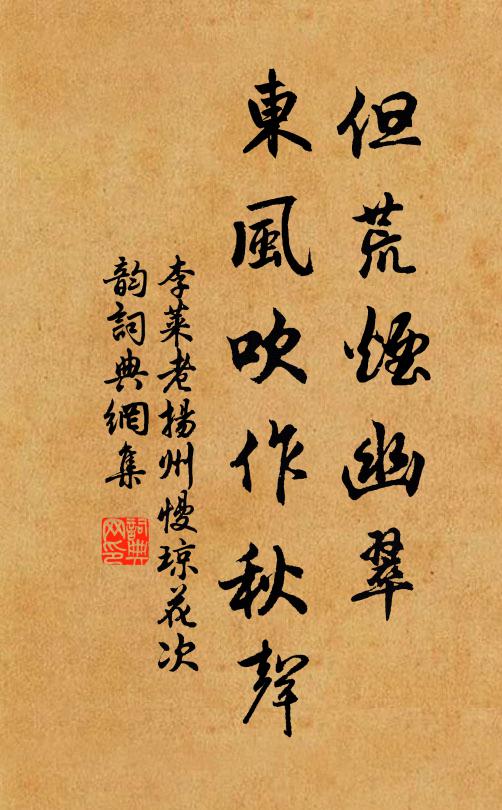 但荒煙幽翠
東風吹作秋聲
李萊老揚州慢瓊花次
韵詞典網集
詞典网印